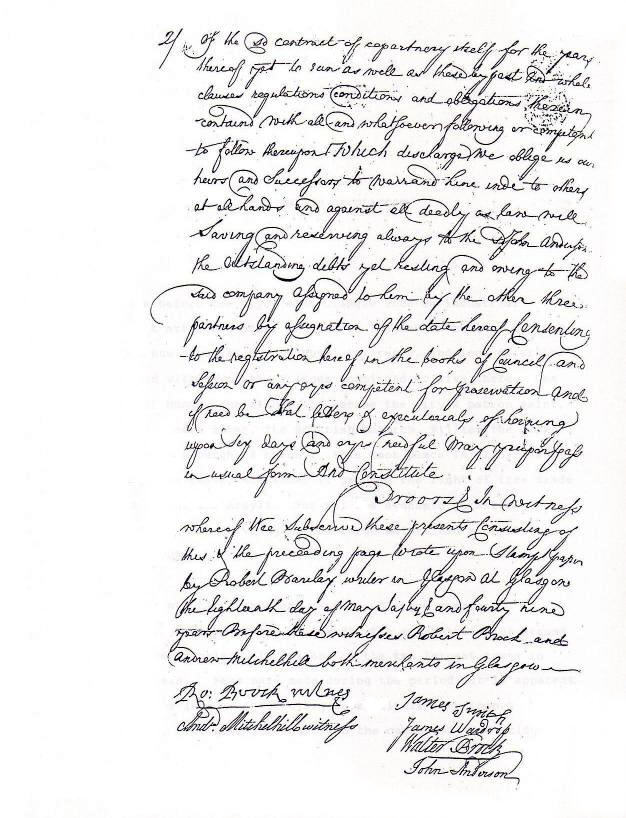 2/ of the sd contract of copartnery itself for the years
thereof yet to run as well as those bypast and whole
clauses regulations conditions and obligations therein
containd with all and whatsoever following or competent
to follow thereupon Which discharge We oblige us our
heirs and Successors to warrand hinc inde to others
at all hands and against all deadly as law will
Saving and reserving always to the sd John Anderson
the outstanding debts yet resting and owing to the
said company assigned to them by the other three
partners by assignation of the date hereof Consenting
to the registration hereof in the books of Council and
Session or any oyrs competent for preservation and
if need be that letters of executorials of horning
upon six days and oyrs needful may yrupon pass
in usual form And Constitute
Proors &c In Witness
whereof Wee Subscrive these presents Consisting of
this & the preceeding page wrote upon Stampt paper
by Robert Barclay writer in Glasgow At Glasgow
the Eighteenth day of May Jajvij & and fourty nine
years Before these witnesses Robert Brock and
Andrew Mitchelhill both merchants in Glasgow
Ro: Brock witnes
And: Mitchelhill witness
James Smith
James Wardrop
Walter Brock
John Anderson